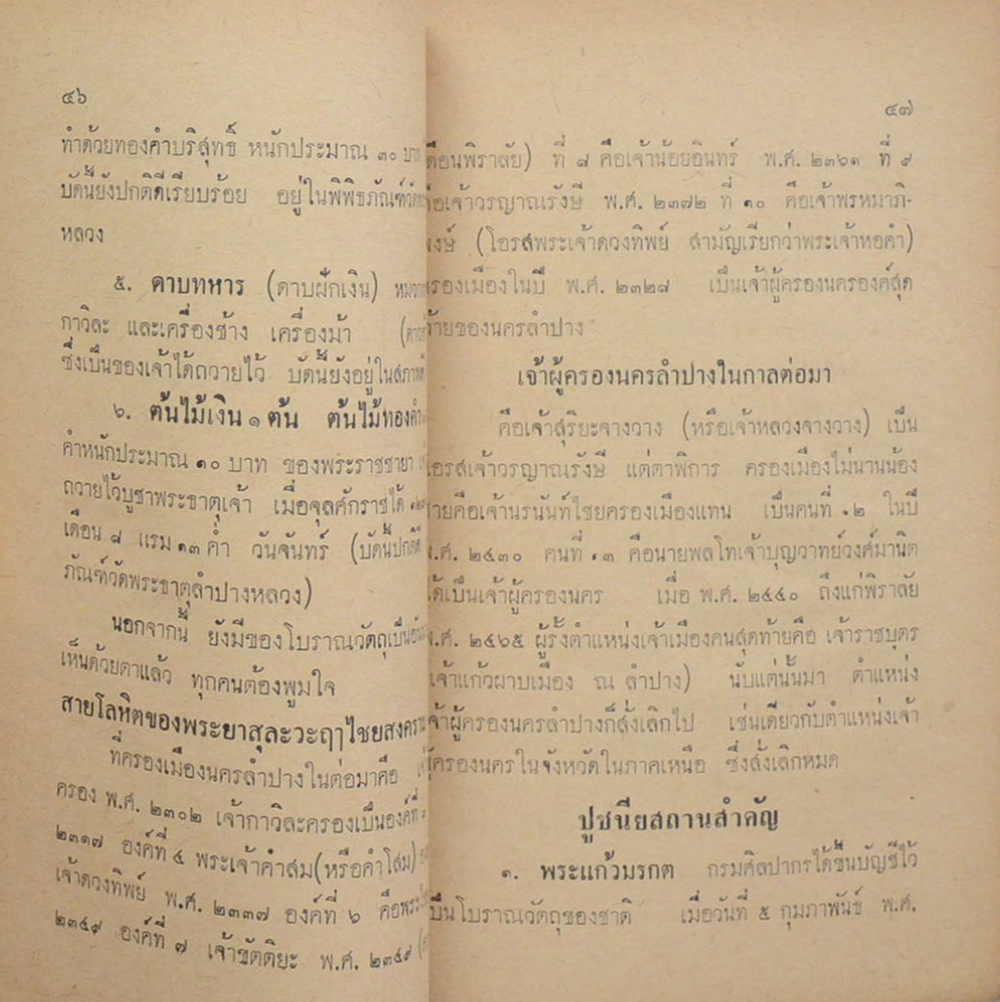 ๔๖
ทำด้วยทองคำบริสุทธิ์ หนักประมาณ ๓๐ บาท
บัดนี้ยังปกติดีเรียบร้อย อยู่ในพิพิธภัณฑ์วัด
หลวง
๕. ดาบทหาร (ดาบฝักเงิน)
กาวิละ และเครื่องช้าง เครื่องม้า
ซึ่งเป็นของเจ้าได้ถวายไว้ บัดนี้ยังอยู่ในสภาพ
๖. ต้นไม้เงิน ๑ ต้น ต้นไม้ทองคำ
คำหนักประมาณ ๑๐ บาท ของพระราชชายา
ถวายไว้บูชาพระธาตุเจ้า เมื่อจุลศักราชได้
เดือน ๘ แรม ๑๓ ค่ำ วันจันทร์ (บัดนี้ปกติดี
ภัณฑ์วัดพระธาตุลำปางหลวง)
นอกจากนี้ ยังมีของโบราณวัตถุเป็น
เห็นด้วยตาแล้ว ทุกคนต้องภูมใจ
สายโลหิตของพระยาสุละวะฤๅไชยสงคราม
ที่ครองเมืองนครลำปางในต่อมาคือ
ครอง พ.ศ. ๒๓๐๒ เจ้ากาวิละครองเป็นองค์ที่
๒๓๑๗ องค์ที่ ๔ พระเจ้าคำสม(หรือคำโสม)
เจ้าดวงทิพย์ พ.ศ. ๒๓๓๗ องค์ที่ ๖ คือพระ
๒๓๔๙ องค์ที่ ๗ เจ้าขัตติยะ พ.ศ. ๒๓๔๙
๔๗
เดือนพิราลัย) ที่ ๘ คือเจ้าน้อยอินทร์ พ.ศ. ๒๓๖๑ ที่ ๙
คือเจ้าวรญาณรังษี พ.ศ. ๒๓๗๒ ที่ ๑๐ คือเจ้าพรหมาภิ-
พงษ์ (โอรสพระเจ้าดวงทิพย์ สามัญเรียกว่าพระเจ้าหอคำ)
ครองเมืองในปี พ.ศ. ๒๓๒๘ เป็นเจ้าผู้ครองนครองค์สุด
ท้ายของนครลำปาง
เจ้าผู้ครองนครลำปางในกาลต่อมา
คือเจ้าสุริยะจางวาง (หรือเจ้าหลวงจางวาง) เป็น
โอรสเจ้าวรญาณรังษี แต่ตาพิการ ครองเมืองไม่นานน้อง
ชายคือเจ้านรนันท์ไชยครองเมืองแทน เป็นคนที่ ๑๒ ในปี
พ.ศ. ๒๔๓๐ คนที่ ๑๓ คือนายพลโทเจ้าบุญวาทย์วงศ์มานิต
ได้เป็นเจ้าผู้ครองนคร เมื่อ พ.ศ. ๒๔๔๐ ถึงแก่พิราลัย
พ.ศ. ๒๔๖๕ ผู้รั้งตำแหน่งเจ้าเมืองคนสุดท้ายคือ เจ้าราชบุตร
(เจ้าแก้วผาบเมือง ณ ลำปาง) นับแต่นั้นมา ตำแหน่ง
เจ้าผู้ครองนครลำปางก็สั่งเลิกไป เช่นเดียวกับตำแหน่งเจ้า
ผู้ครองนครในจังหวัดในภาคเหนือ ซึ่งสั่งเลิกหมด
ปูชนียสถานสำคัญ
๑. พระแก้วมรกต กรมศิลปากรได้ขึ้นบัญชีไว้
เป็นโบราณวัตถุของชาติ เมื่อวันที่ ๕ กุมภาพันธ์ พ.ศ.